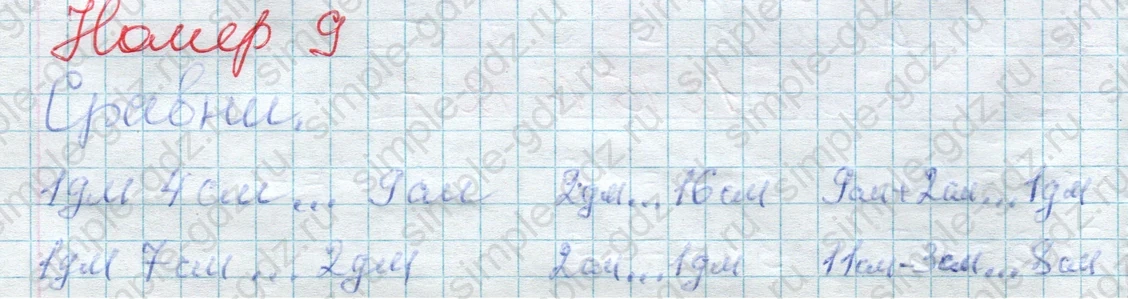 Номер 9
Сравни.
1дм 4см ... 9см 2дм...16см 9см+2см...1дм
1дм 7см ... 2дм 2см...1дм 11см-3см...8см
simple-gdz.ru